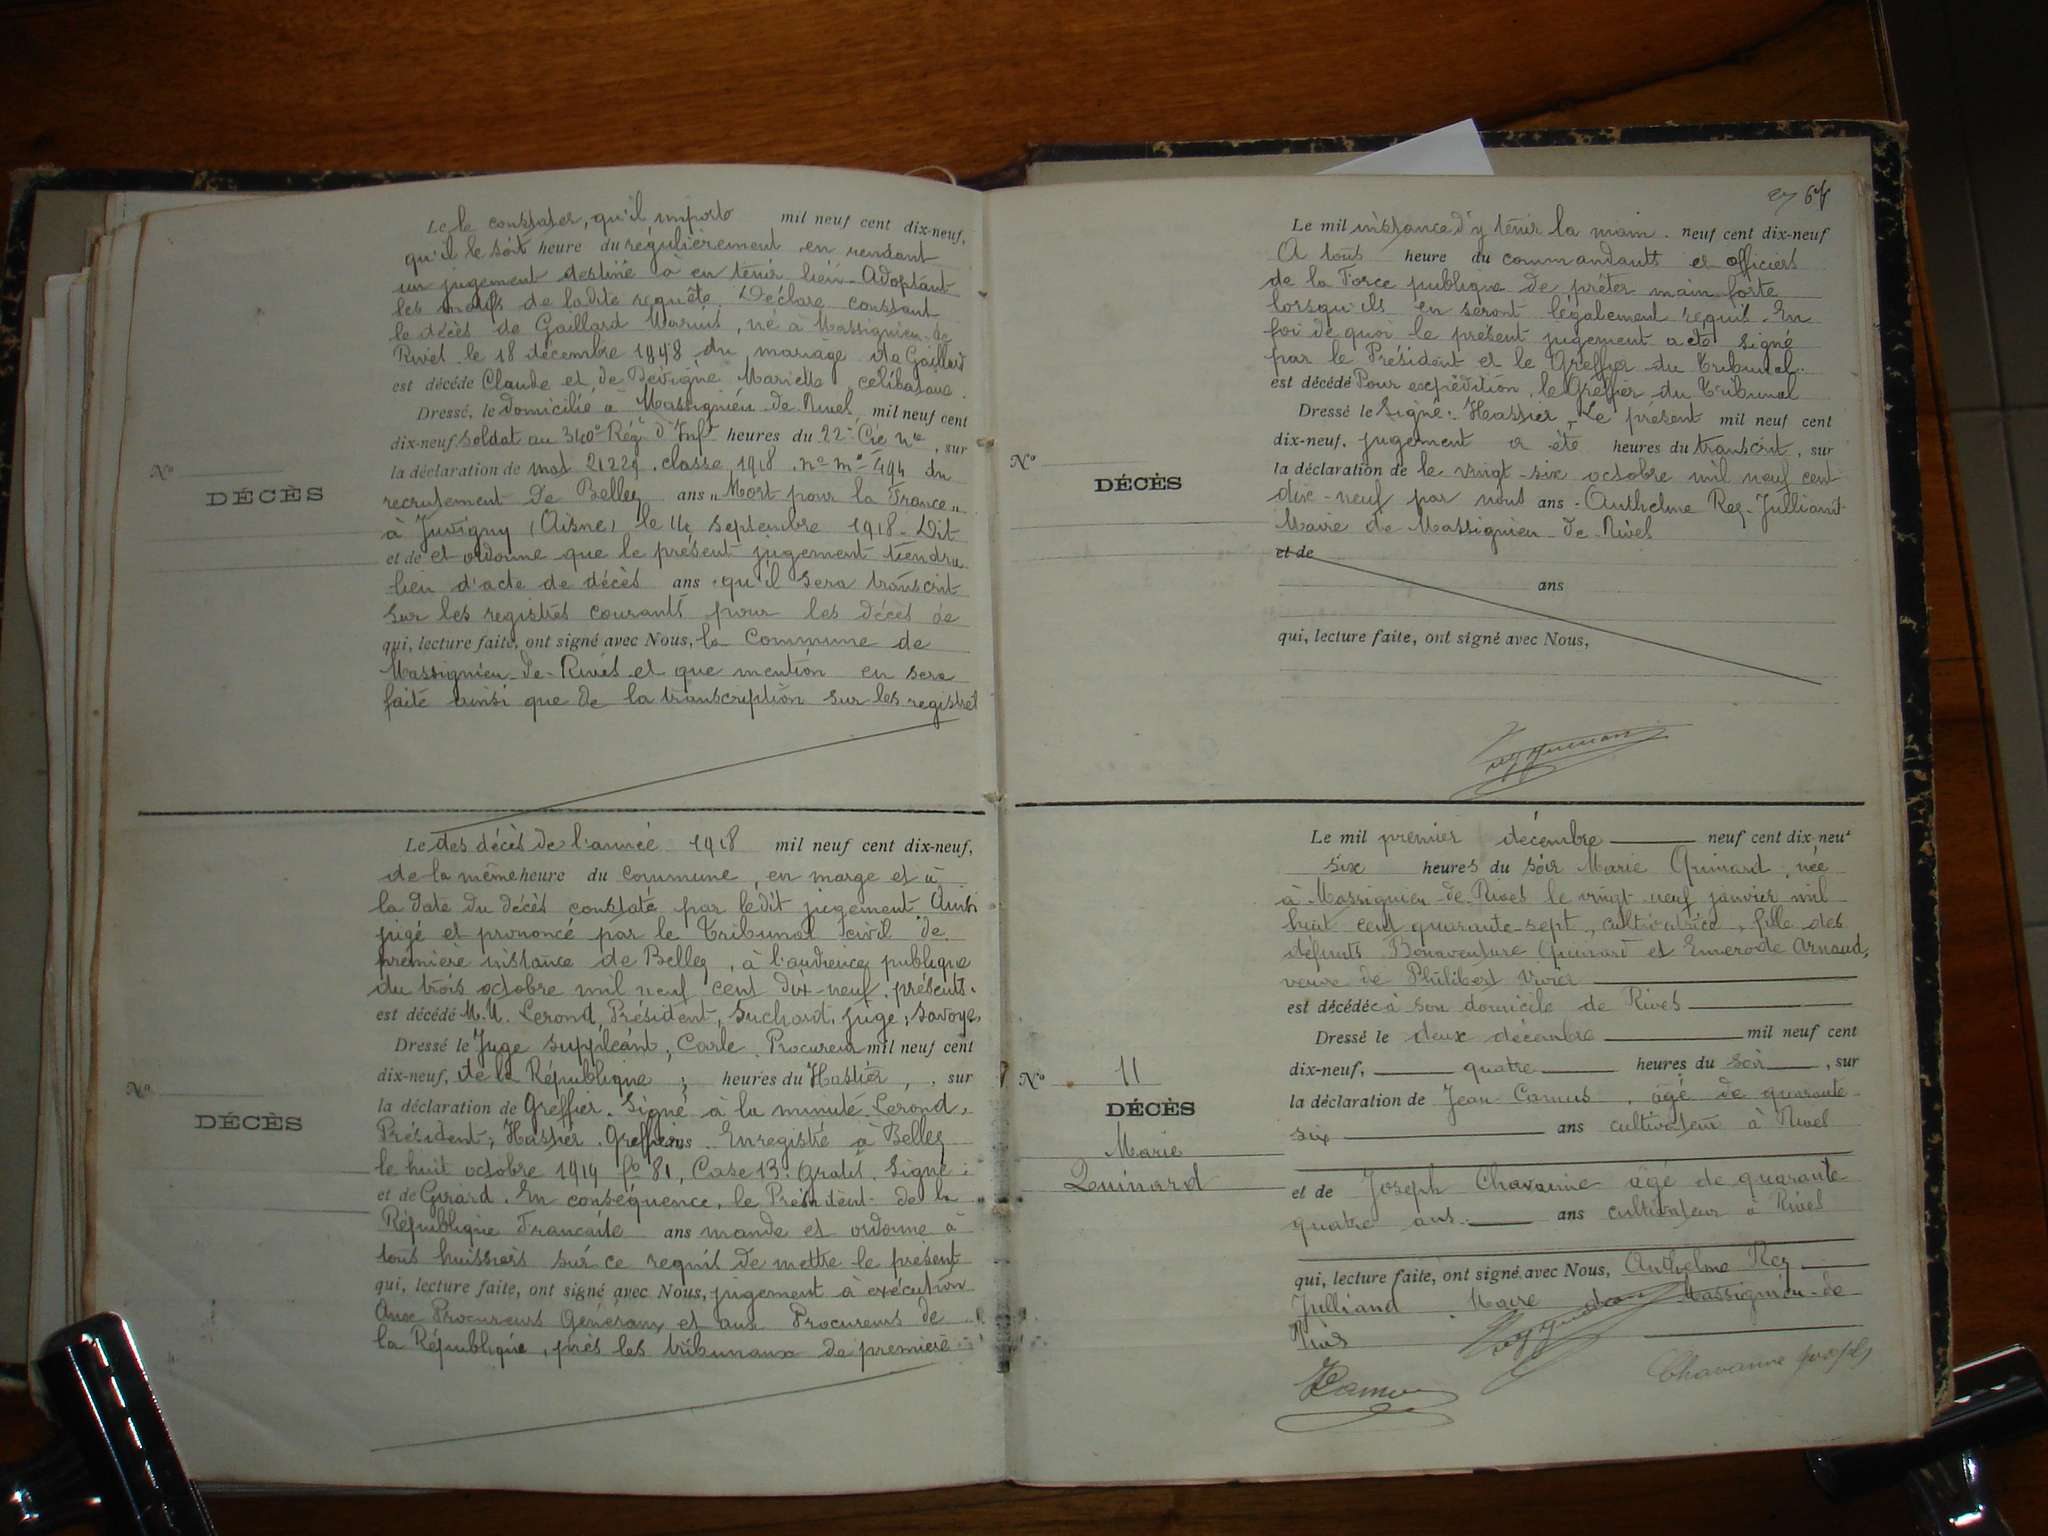 Le le constater, qu'il importe mil neuf cent dix-neuf,
qu'il le soit heure du régulièrement en rendant
un jugement destiné à en tenir lieu. Adoptant
les motifs de ladite requête. Déclare constant
le décès de Gaillard Marius, né à Massignieu-de
Rives le 18 décembre du mariage de Gaillard
est décédé Claude et de Devigne Mariette célibataire
Dressé, le domicilié à Massignieu de Rives mil neuf cent
dix-neuf soldat au 340e Régt d'Inft heures du 22e Cie nle , sur
la déclaration de mat 21229. classe 1918. no mle 494 du
recrutement de Belley ans "Mort pour la France"
à Juvigny (Aisne) le 14 septembre 1918. Dit
et de et ordonne que le présent jugement tiendra
lieu d'acte de décès ans qu'il sera transcrit
sur les registres courants pour les décès de
qui, lecture faite, ont signé avec Nous, la Commune de
Massignieu-de-Rives et que mention en sera
faite ainsi que de la transcription sur les registres
No
DÉCÈS
Le des décès de l'année 1918 mil neuf cent dix-neuf,
de la même heure du commune, en marge et à
la date du décès constaté par ledit jugement. Ainsi
jugé et prononcé par le Tribunal civil de
première instance de Belley, à l'audience publique
du trois octobre mil neuf cent dix-neuf. présents.
est décédé M.M. Lerond, Président, Suchard, juge, Savoye,
Dressé le Juge suppléant, Carle. Procureur mil neuf cent
dix-neuf, de la République ; heures du Hastier, , sur
la déclaration de Greffier. Signé à la minute Lerond,
Président, Hastier. Greffier ans. Enregistré à Belley
le huit octobre 1919 fo 81, Case 13. Gratis. Signé :
et de Girard. En conséquence, le Président de la
République Française ans mande et ordonne à
tous huissiers sur ce requis de mettre le présent
qui, lecture faite, ont signé avec Nous, jugement à exécution
Aux Procureurs Généraux et aux Procureurs de
la République, près les tribunaux de première
No
DÉCÈS
27 67
Le mil instance d'y tenir la main. neuf cent dix-neuf
A tous heure du commandants et officiers
de la Force publique de prêter main forte
lorsqu'ils en seront légalement requis. En
foi de quoi le présent jugement a été signé
par le Président et le Greffier du Tribunal.
est décédé Pour expédition, le Greffier du Tribunal
Dressé le Signé: Hastier, Le présent mil neuf cent
dix-neuf, jugement a été heures du transcrit, sur
la déclaration de le vingt-six octobre mil neuf cent
dix-neuf par nous ans. Anthelme Rey-Julliand
Maire de Massignieu-de-Rives
et de
ans
qui, lecture faite, ont signé avec Nous,
No
DÉCÈS
Le mil premier décembre neuf cent dix-neuf
six heures du soir Marie Quinard, née
à Massignieu-de-Rives le vingt neuf janvier mil
huit cent quarante-sept, cultivatrice, fille des
défunts Bonaventure Quinard et Emerode Arnaud,
veuve de Philibert
est décédée à son domicile de Rives
Dressé le deux décembre mil neuf cent
dix-neuf, quatre heures du soir , sur
la déclaration de Jean Camus, âgé de quarante
six ans cultivateur à Rives
et de Joseph Chavanne âgé de quarante
quatre ans. ans cultivateur à Rives
qui, lecture faite, ont signé avec Nous, Anthelme Rey
Julliand Maire de Massignieu-de
Rives
Camus
Chavanne Joseph
No 11
DÉCÈS
Marie
Quinard